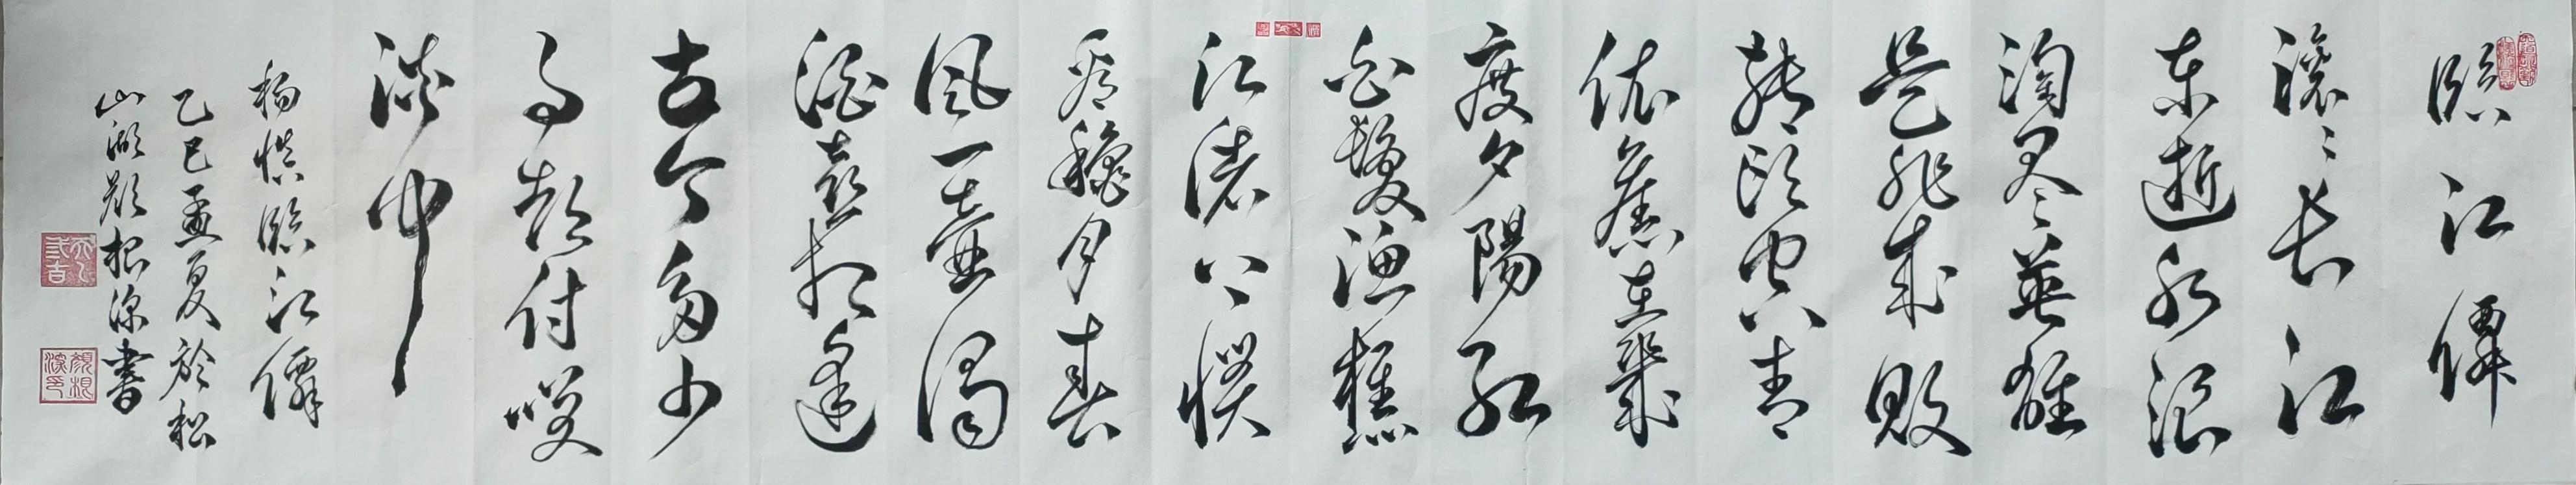 臨江僊
滾〻長江
東逝水浪
淘尽英雄
是非成敗
轉頭空青
依舊在幾
度夕陽紅
白髮漁樵
江渚上慣
看穐月春
風一壺濁
酒喜相逢
古今多少
事都付笑
談中
楊慎臨江僊
乙巳孟夏於松
山湖顏根深書
顏根深印